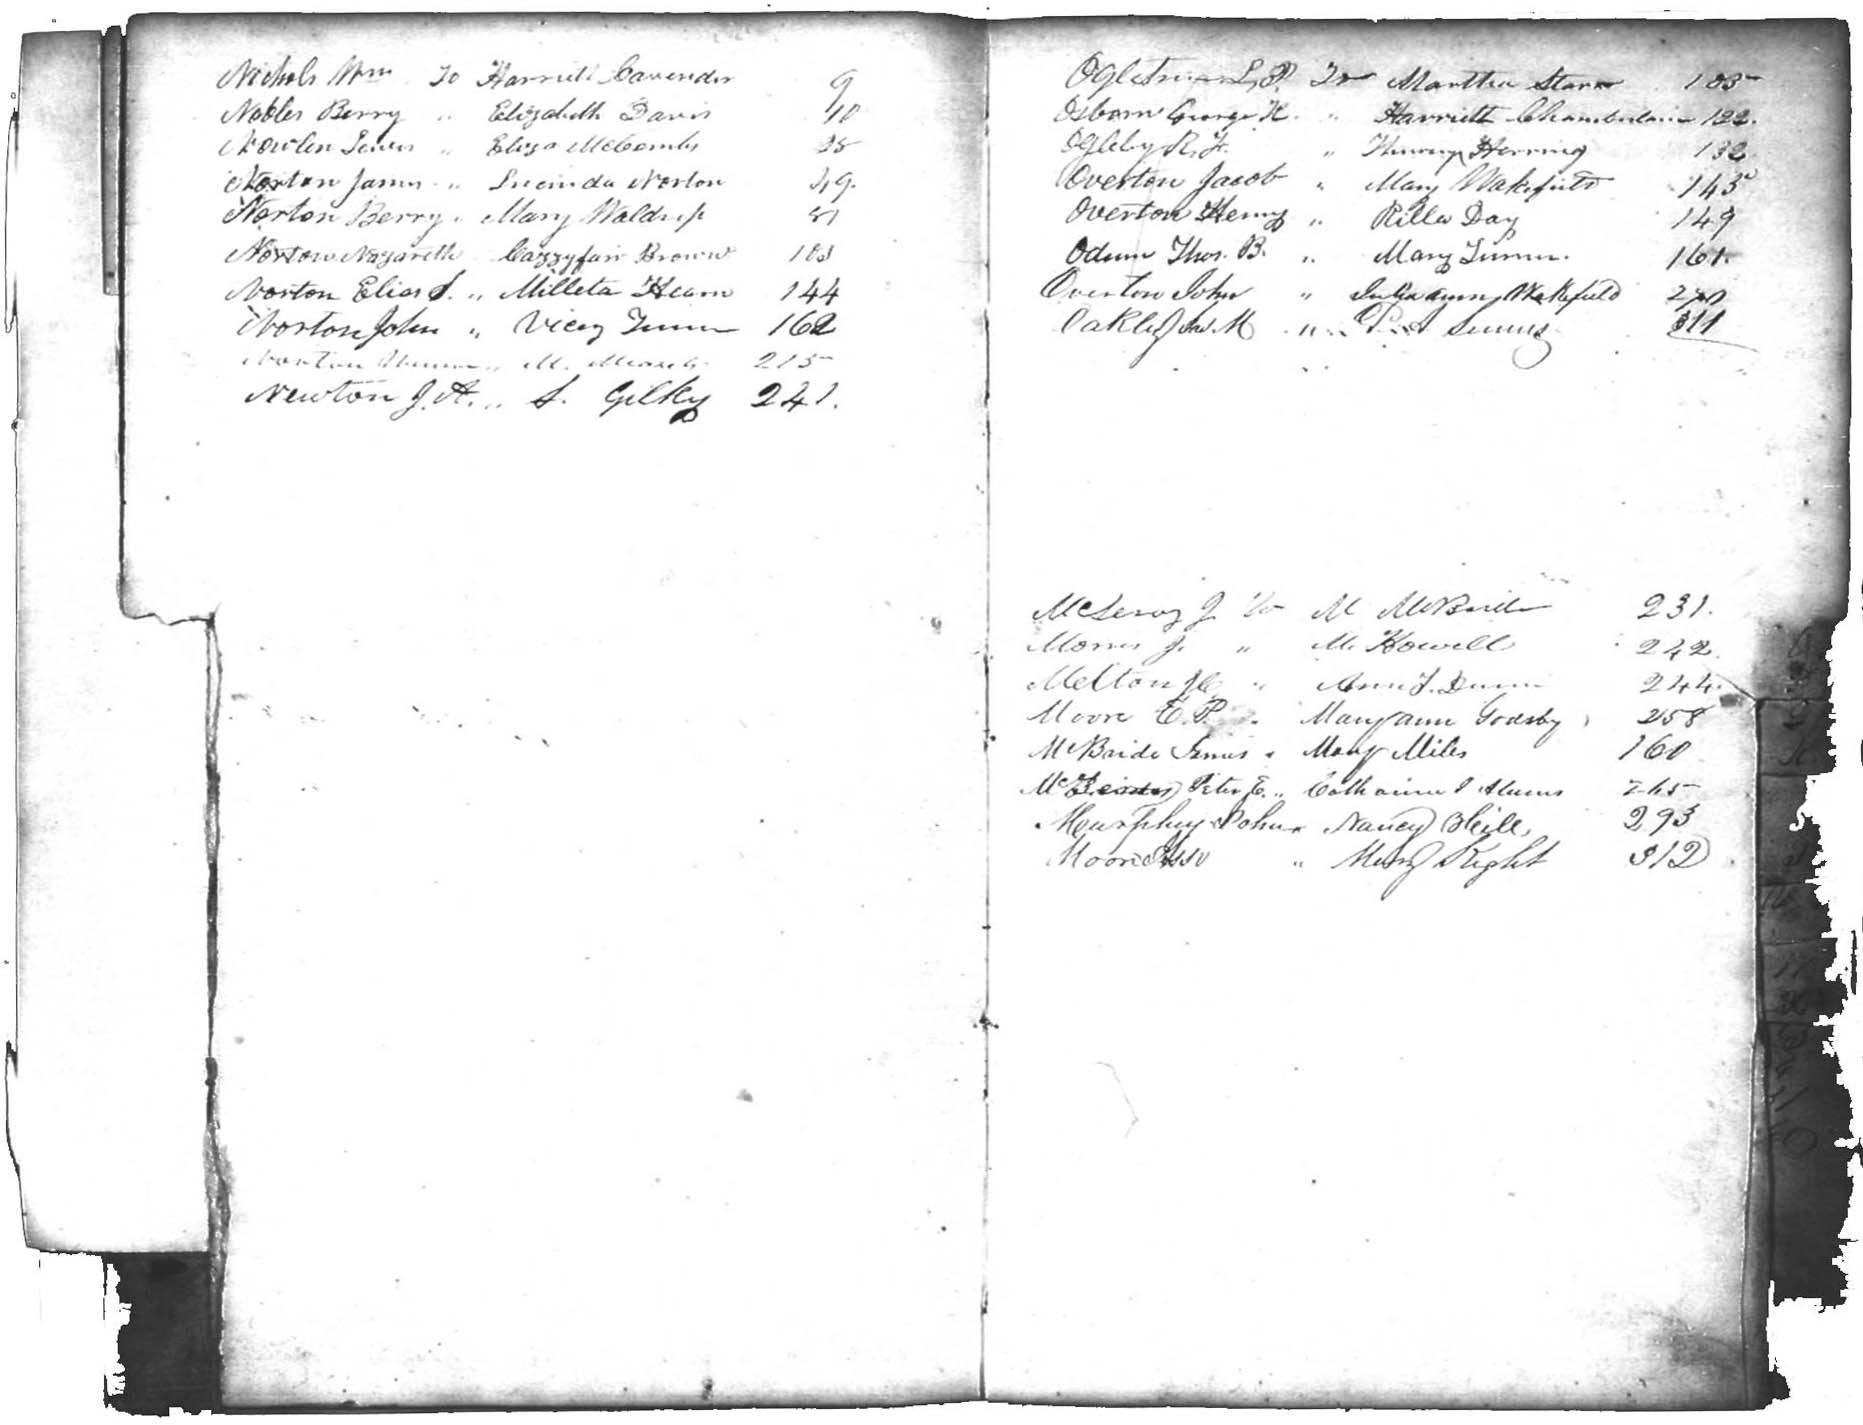 Nichols Wm To Harriett Cavender 9
Nobles Berry " Elizabeth Davis 10
Nowlin " Eliza McCombs 28
Norton James " Lucinda Norton 49.
Norton Berry " Mary Waldrip 81
Norton Nazareth Cazzyfair Brown 103
Norton Elias S. " Milleta Hearn 144
Norton John " Vicey Turner 162
Norton " M. 215
Newton J. A. " S. Gilky 241.
Ogletree L. P. To Marttha Starr 105
Osborn George H. " Harriett Chamberlain 122.
Ogleby R. F. " Herring 132.
Overton Jacob " Mary Wakefield 145
Overton Henry " Rilla Day 149
Odum Thos. B. " Mary Turner. 161.
Overton John " Wakefield 270
Oakley Jas M " 311
McLeroy J To M McBride 231.
Morris J. " M. Howell 242.
Melton " Ann F. Dunn 244.
Moore E. P. " Maryann Godsby 258
McBride James " Mary Miles 160
Peter E. " Catharine 265
Mourphey John " Nancy Oneill 293
Moore " Mary Right 312